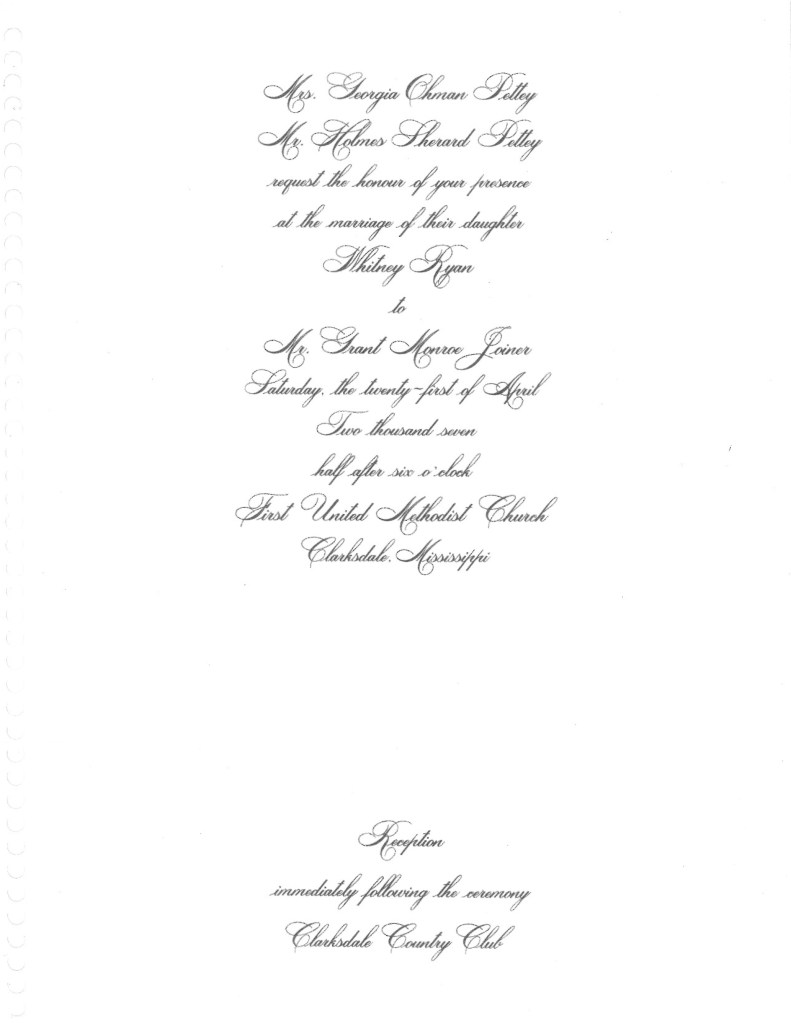 Mrs. Georgia Ohman Pettey
Mr. Holmes Sherard Pettey
request the honour of your presence
at the marriage of their daughter
Whitney Ryan
to
Mr. Grant Monroe Joiner
Saturday, the twenty-first of April
Two thousand seven
half after six o'clock
First United Methodist Church
Clarksdale, Mississippi
Reception
immediately following the ceremony
Clarksdale Country Club